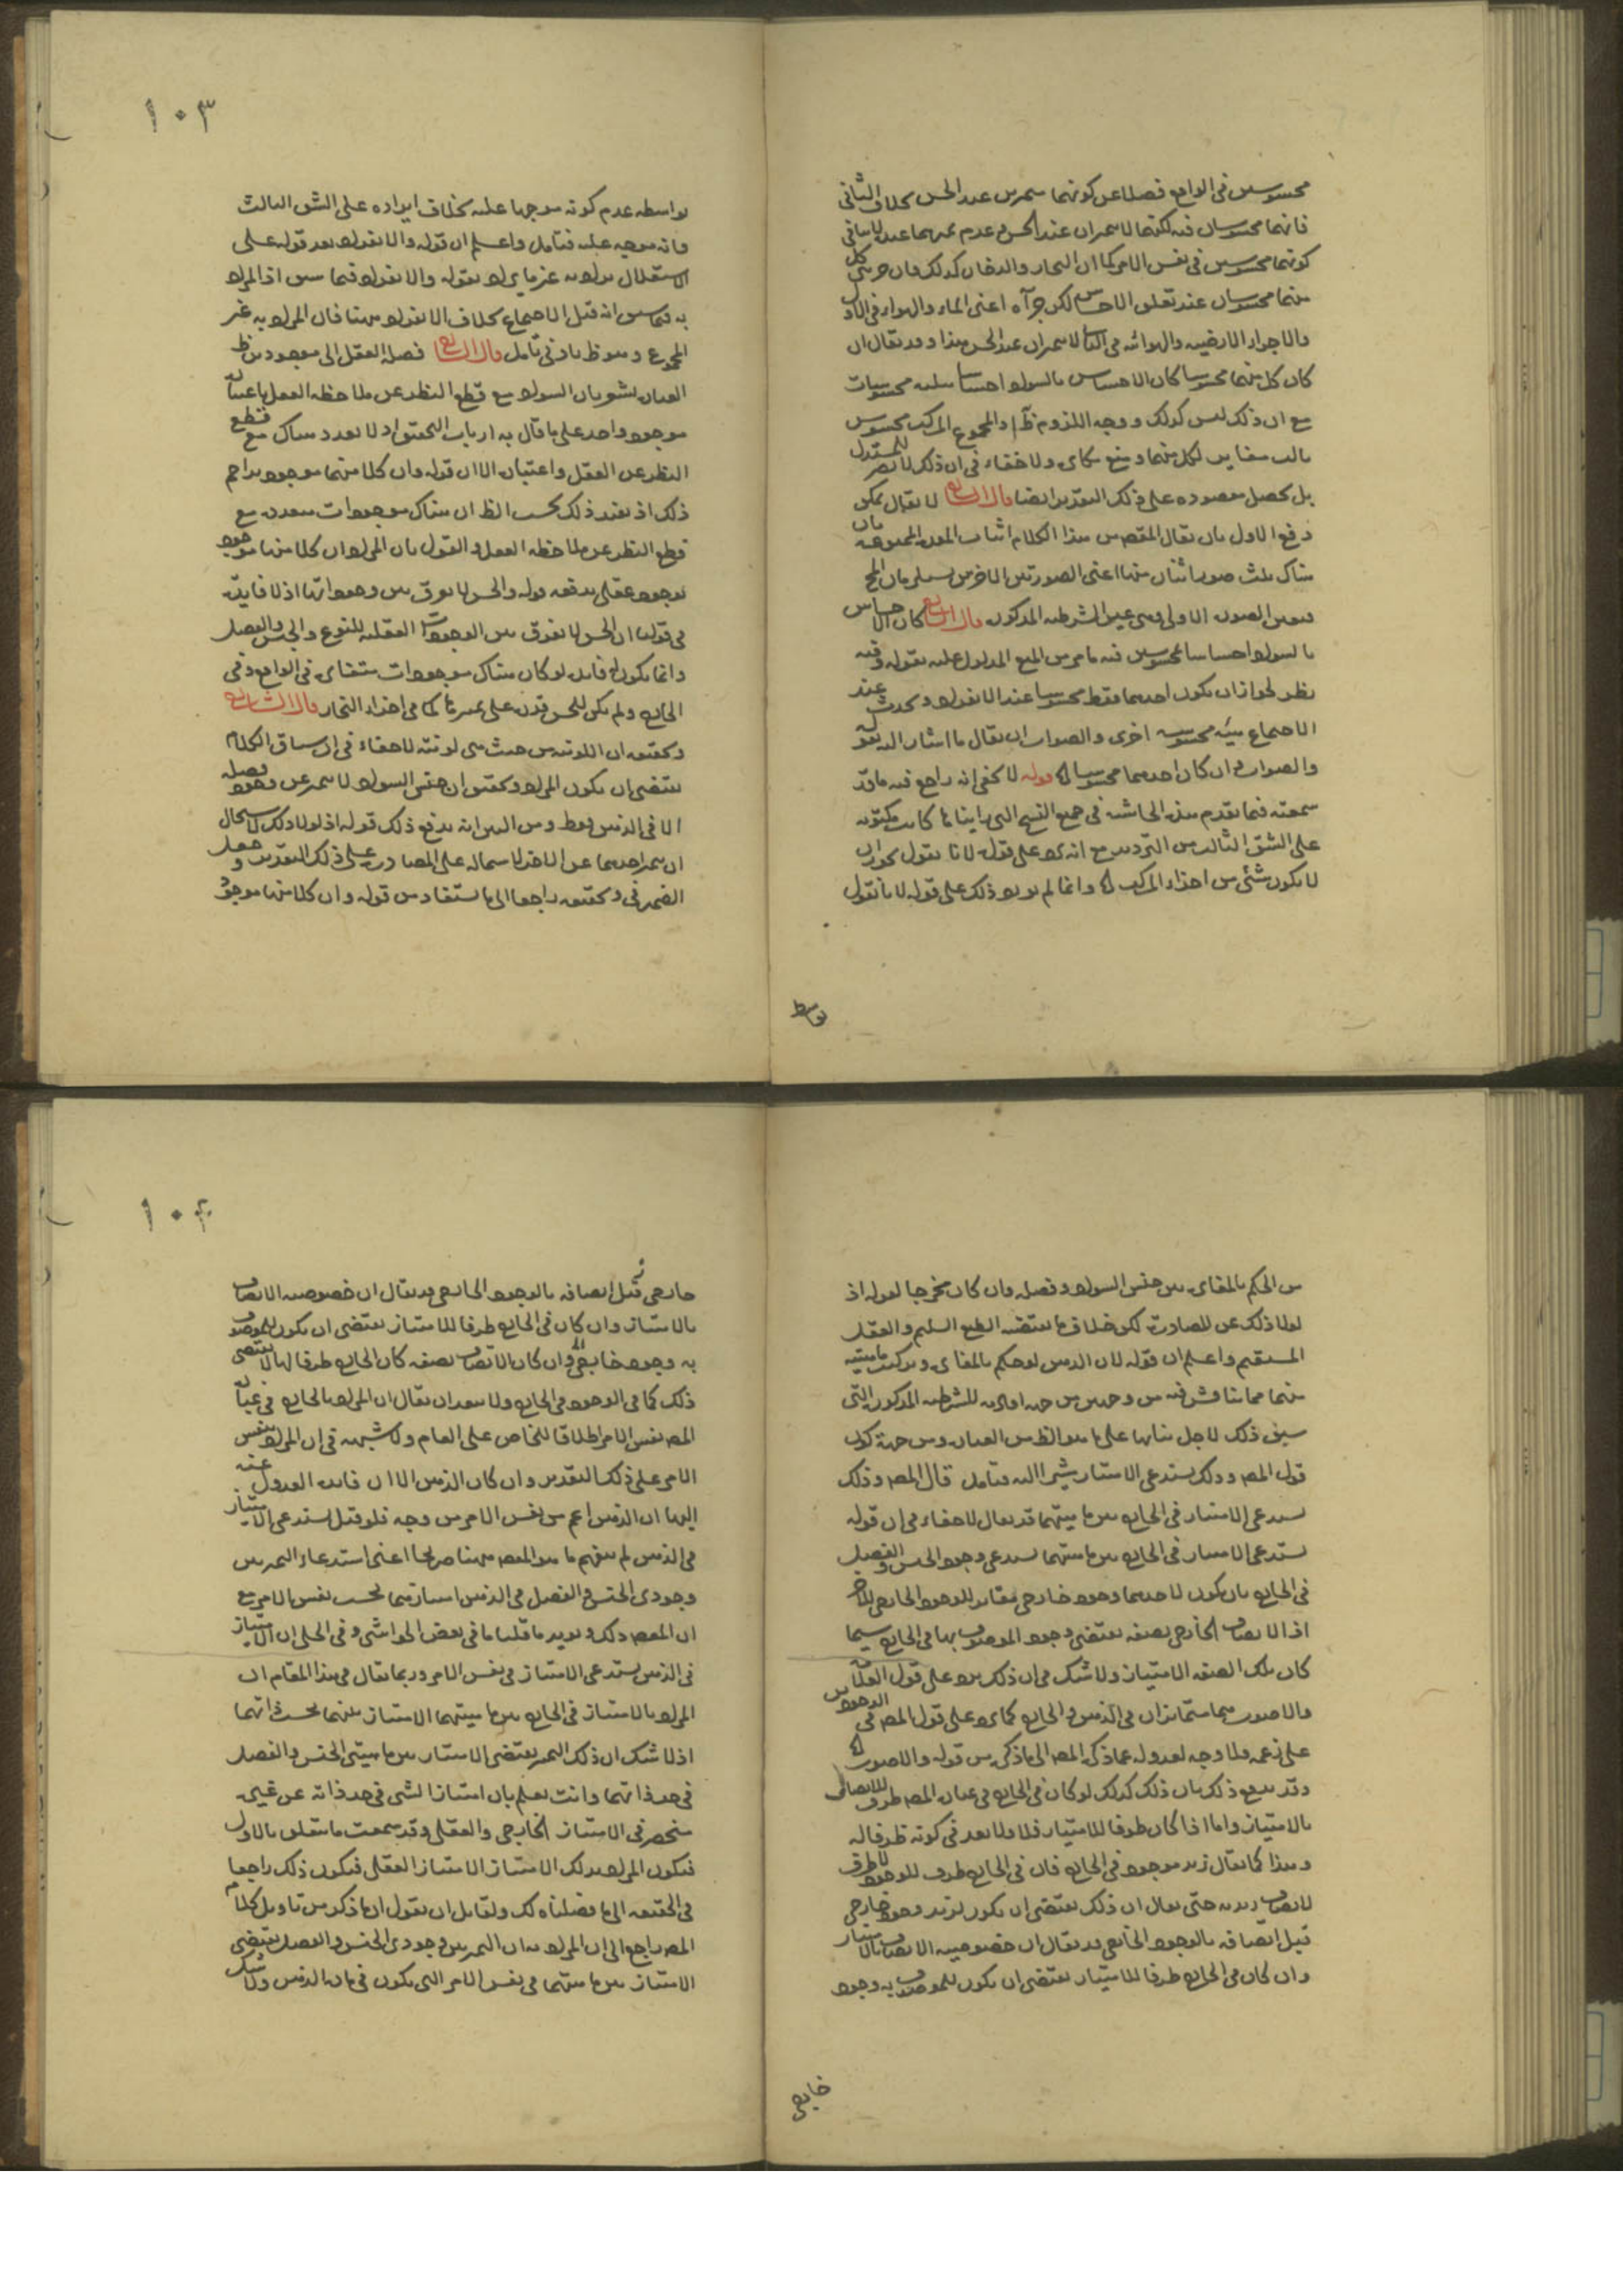 محسوسين في الواقع فضلا عن كونهما متميزين عند الحس بخلاف الثاني
فانهما محسوسان فيه لكنهما لا يتميزان عند الحس وعدم تميزهما عنده لا ينافي
كونهما محسوسين في نفس الامر كما ان البخار والدخان كذلك فان جزئي كل
منهما محسوسان عند تعلق الاحساس لكن جزآه اعني الماء والهواء في الاول
والاجزاء الارضية والهوائية في الثاني لا يتميزان عند الحس هذا وقد يقال ان
كان كل منهما محسوسا كان الاحساس بالسواد احساسا بثلثة محسوسات
مع ان ذلك ليس كذلك ووجه اللزوم ظ اذ المجموع المركب محسوس
ثالث مغاير لكل منهما ومنع مكابرة ولا خفاء في ان ذلك لا يضر المستدل
بل يحصل مقصوده على ذلك التقدير ايضا قال الشارح لا يقال يمكن
دفع الاول بان يقال المقص من هذا الكلام اثبات المجموعة بان
هناك ثلث صور اثنان منها اعني الصورتين الاخرتين
الصورة الاولى وهي عين الشرطية المذكورة قال الشارح كان الاحساس
بالسواد احساسا بمحسوسين فيه ما مر من المنع المدلول عليه بقوله وفيه
نظر لجواز ان يكون احدهما فقط محسوسا عند الانفراد ويحدث عند
الاجتماع هيئة محسوسة اخرى والصواب ان يقال ما اشار اليه بقوله
والصواب ان كان احدهما محسوسا قوله لا يخفى انه راجع فيه ما قد
سمعته فيما تقدم هذه الحاشية في جميع النسخ التي رايناها كانت مكتوبة
على الشق الثالث من الترديد مع انه يرد على قوله لانا نقول يجوز ان
لا يكون شئ من اجزاء المركب وانما لم يورد ذلك على قوله لانا نقول
بواسطة
١٠٣
بواسطة عدم كونه موجها عليه بخلاف ايراده على الشق الثالث
فانه موجه عليه فتامل واعلم ان قوله والانفراد بعد قوله على
الاستقلال يراد به غير ما يراد بقوله والانفراد فيما سبق اذ المراد
به فيما سبق انه قبل الاجتماع بخلاف الانفراد ههنا فان المراد به غير
المجموع وهو ظ بادنى تامل قال الشارح فصله العقل الى موجودين ظ
العبارة يشعر بان السواد مع قطع النظر عن ملاحظة العقل باعتباره
موجود واحد على ما قال به ارباب التحقيق اذ لا تعدد هناك مع قطع
النظر عن العقل واعتباره الا ان قوله وان كلا منهما موجود يزاحم
ذلك اذ يفيد ذلك بحسب الظ ان هناك موجودات متعددة مع
قطع النظر عن ملاحظة العقل والقول بان المراد ان كلا منها موجود
بوجود عقلي يدفعه قوله والحس لا يفرق بين وجوداتها اذ لا فائدة
في قولنا ان الحس لا يفرق بين الوجودات العقلية للنوع والجنس والفصل
وانما يكون له فائدة لو كان هناك موجودات متغايرة في الواقع وفي
الخارج ولم يكن للحس قدرة على تميزها كما في اجزاء البخار قال الشارح
وتحقيقه ان اللونية من حيث هي لونية لا خفاء في ان سياق الكلام
يقتضي ان يكون المراد وتحقيق ان جنس السواد لا يتميز عن فصله وجودا
الا في الذهن فقط ومن البين انه يدفع ذلك قوله اذ لولا ذلك لاستحال
ان يتميز احدهما عن الاخر لاشماله على المصادرة على ذلك التقدير وجعل
الضمير في وتحقيقه راجعا الى ما يستفاد من قوله وان كلا منها موجود
من الحكم بالمغايرة بين جنس السواد وفصله وان كان مخرجا لقوله اذ
لولا ذلك عن المصادرة لكن خلاف ما يقتضيه الطبع السليم والعقل
المستقيم واعلم ان قوله لان الذهن لو حكم بالمغايرة وتركيب ماهيته
منهما مما يناقش فيه من وجهين من جهة للشرطية المذكورة التي
سيق ذلك لاجل بيانها على ما هو الظ من العبارة ومن جهة كون
قول المص وذلك يستدعي الامتياز مشيرا اليه فتامل قال المص وذلك
يستدعي الامتياز في الخارج بين ماهيتهما قد يقال لا خفاء في ان قوله
يستدعي الامتياز في الخارج بين ماهيتهما يستدعي وجود الجنس والفصل
في الخارج بان يكون لاحدهما وجود خارجي مغاير للوجود الخارجي للاخر
اذ الاتصاف الخارجي بصفة يقتضي وجود الموصوف بها في الخارج سيما
كان تلك الصفة الامتياز ولا شك في ان ذلك يرد على قول القائل
والا صورتهما متمايزان في الذهن والخارج كما يرد على قول المص في الوجودين
على زعمه فلا وجه لعدوله عما ذكره المص الى ما ذكره من قوله والا صورتا
وقد يدفع ذلك بان ذلك كذلك لو كان في الخارج في عبارة المص ظرف للاتصاف
بالامتياز واما اذا كان ظرفا للامتياز فلا ولا بعد في كونه ظرفا له
وهذا كما يقال زيد موجود في الخارج فان في الخارج ظرف للوجود لا ظرف
لاتصاف زيد به حتى يقال ان ذلك يقتضي ان يكون لزيد وجود خارجي
قبل اتصافه بالوجود الخارجي قد يقال ان خصوصية الاتصاف بالامتياز
وان كان في الخارج ظرفا للامتياز يقتضي ان يكون للموصوف به وجود
خارجي
١٠٤
خارجي قبل اتصافه بالوجود الخارجي قد يقال ان خصوصية الاتصاف
بالامتياز وان كان في الخارج ظرفا للامتياز يقتضي ان يكون للموصوف
به وجود خارجي وان كان الاتصاف بصفة كان الخارج ظرفا لها لا يقتضي
ذلك كما في الوجود في الخارج ولا يبعد ان يقال ان المراد بالخارج في عبارة
المص نفس الامر اطلاقا للخاص على العام ولا شبهة في ان المراد بنفس
الامر على ذلك التقدير وان كان الذهن الا ان فائدة العدول عنه
اليها ان الذهن اعم من نفس الامر من وجه فلو قيل يستدعي الامتياز
في الذهن لم يفهم ما هو المقص ههنا صريحا اعني استدعاء التميز بين
وجودي الجنس والفصل في الذهن امتيازهما بحسب نفس الامر مع
ان المقص ذلك ويؤيد ما قلنا ما في بعض الحواشي وفي الحل ان الامتياز
في الذهن يستدعي الامتياز في نفس الامر وربما يقال في هذا المقام ان
المراد بالامتياز في الخارج بين ماهيتهما الامتياز بينهما بحسب ذاتهما
اذ لا شك ان ذلك التميز يقتضي الامتياز بين ماهيتي الجنس والفصل
في حد ذاتهما وانت تعلم بان امتياز الشئ في حد ذاته عن غيره
منحصر في الامتياز الخارجي والعقلي وقد سمعت ما يتعلق بالاول
فيكون المراد بذلك الامتياز الامتياز العقلي فيكون ذلك راجعا
في الحقيقة الى ما فصلناه لك ولقائل ان يقول ان ما ذكر من تاويل كلام
المص راجع الى ان المراد به ان التميز بين وجودي الجنس والفصل يقتضي
الامتياز بين ماهيتهما في نفس الامر التي يكون في مادة الذهن ولا شك